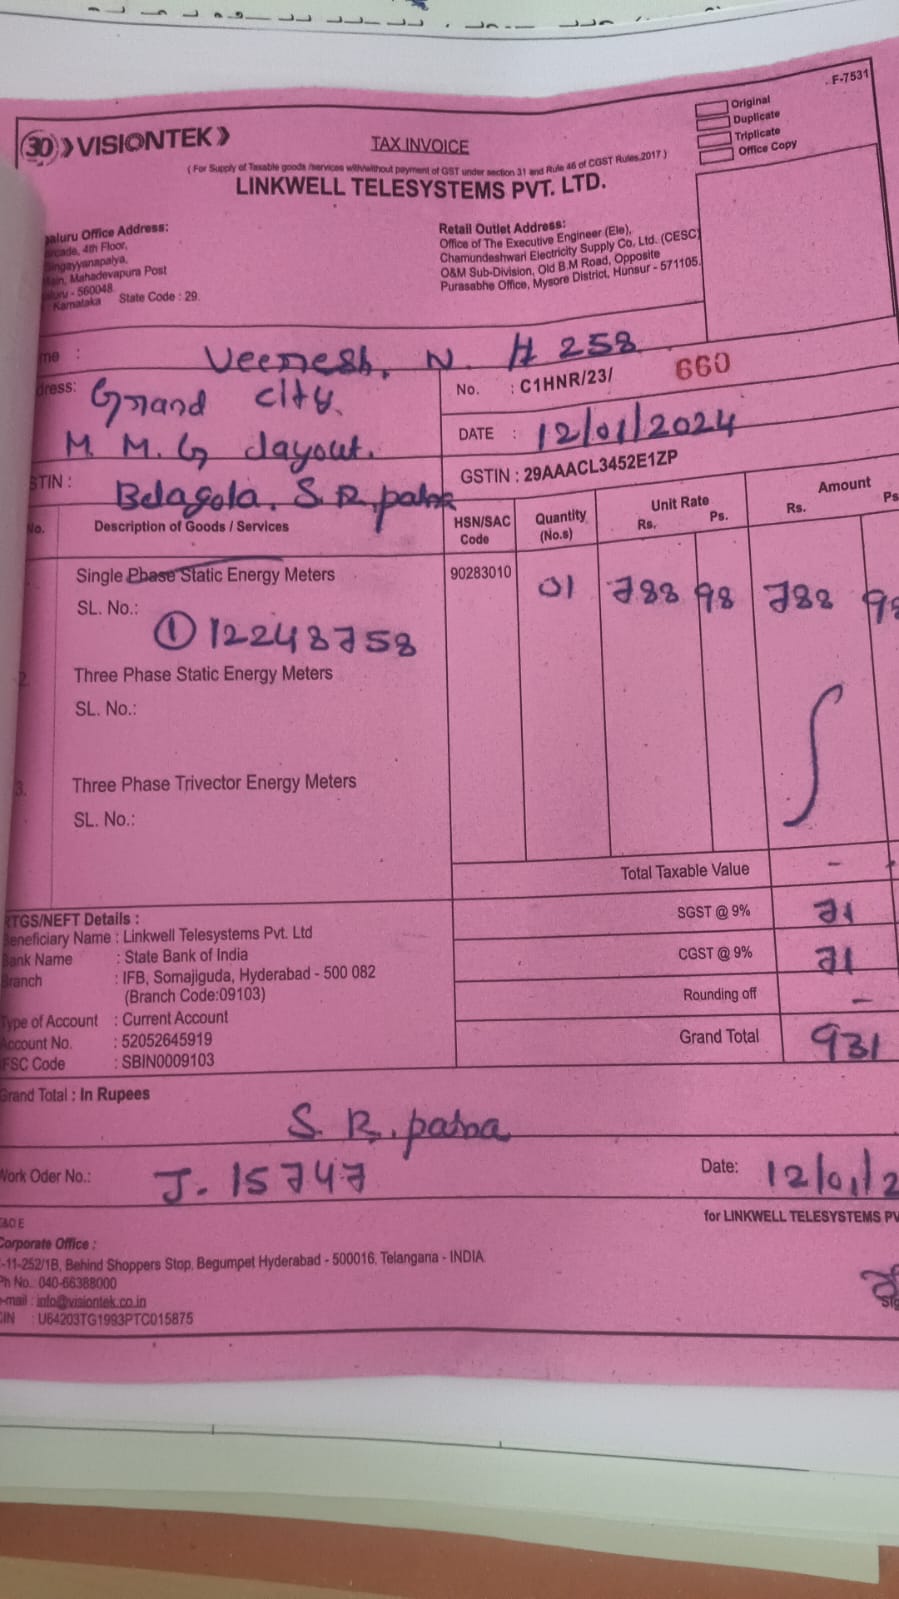 F-7531
Original
Duplicate
Triplicate
Office Copy
30 VISIONTEK
TAX INVOICE
( For Supply of Taxable goods /services with/without payment of GST under section 31 and Rule 46 of CGST Rules,2017 )
LINKWELL TELESYSTEMS PVT. LTD.
aluru Office Address:
4th Floor,
ngayyanapalya,
Main, Mahadevapura Post
- 560048
Karnataka State Code : 29.
Retail Outlet Address:
Office of The Executive Engineer (Ele),
Chamundeshwari Electricity Supply Co. Ltd. (CESC)
O&M Sub-Division, Old B.M Road, Opposite
Purasabhe Office, Mysore District, Hunsur - 571105.
me : Veeresh. N. # 258
dress: Grand City.
M. M. G Layout.
STIN : Belagola. S. R. patna
No. : C1HNR/23/ 660
DATE : 12/01/2024
GSTIN : 29AAACL3452E1ZP
No. Description of Goods / Services HSN/SAC Code Quantity (No.s) Unit Rate Rs. Ps. Amount Rs. Ps
Single Phase Static Energy Meters 90283010 01 788 98 788 98
SL. No.:
① 12248758
2. Three Phase Static Energy Meters
SL. No.:
3. Three Phase Trivector Energy Meters
SL. No.:
Total Taxable Value -
SGST @ 9% 71
CGST @ 9% 71
Rounding off -
Grand Total 931
RTGS/NEFT Details :
Beneficiary Name : Linkwell Telesystems Pvt. Ltd
Bank Name : State Bank of India
Branch : IFB, Somajiguda, Hyderabad - 500 082
(Branch Code:09103)
Type of Account : Current Account
Account No. : 52052645919
FSC Code : SBIN0009103
Grand Total : In Rupees
S. R. patna
Work Oder No.: J. 15747 Date: 12/01/2
E&O E
for LINKWELL TELESYSTEMS PV
Corporate Office :
-11-252/1B, Behind Shoppers Stop, Begumpet Hyderabad - 500016, Telangana - INDIA
Ph No.: 040-66388000
e-mail : info@visiontek.co.in
CIN : U64203TG1993PTC015875